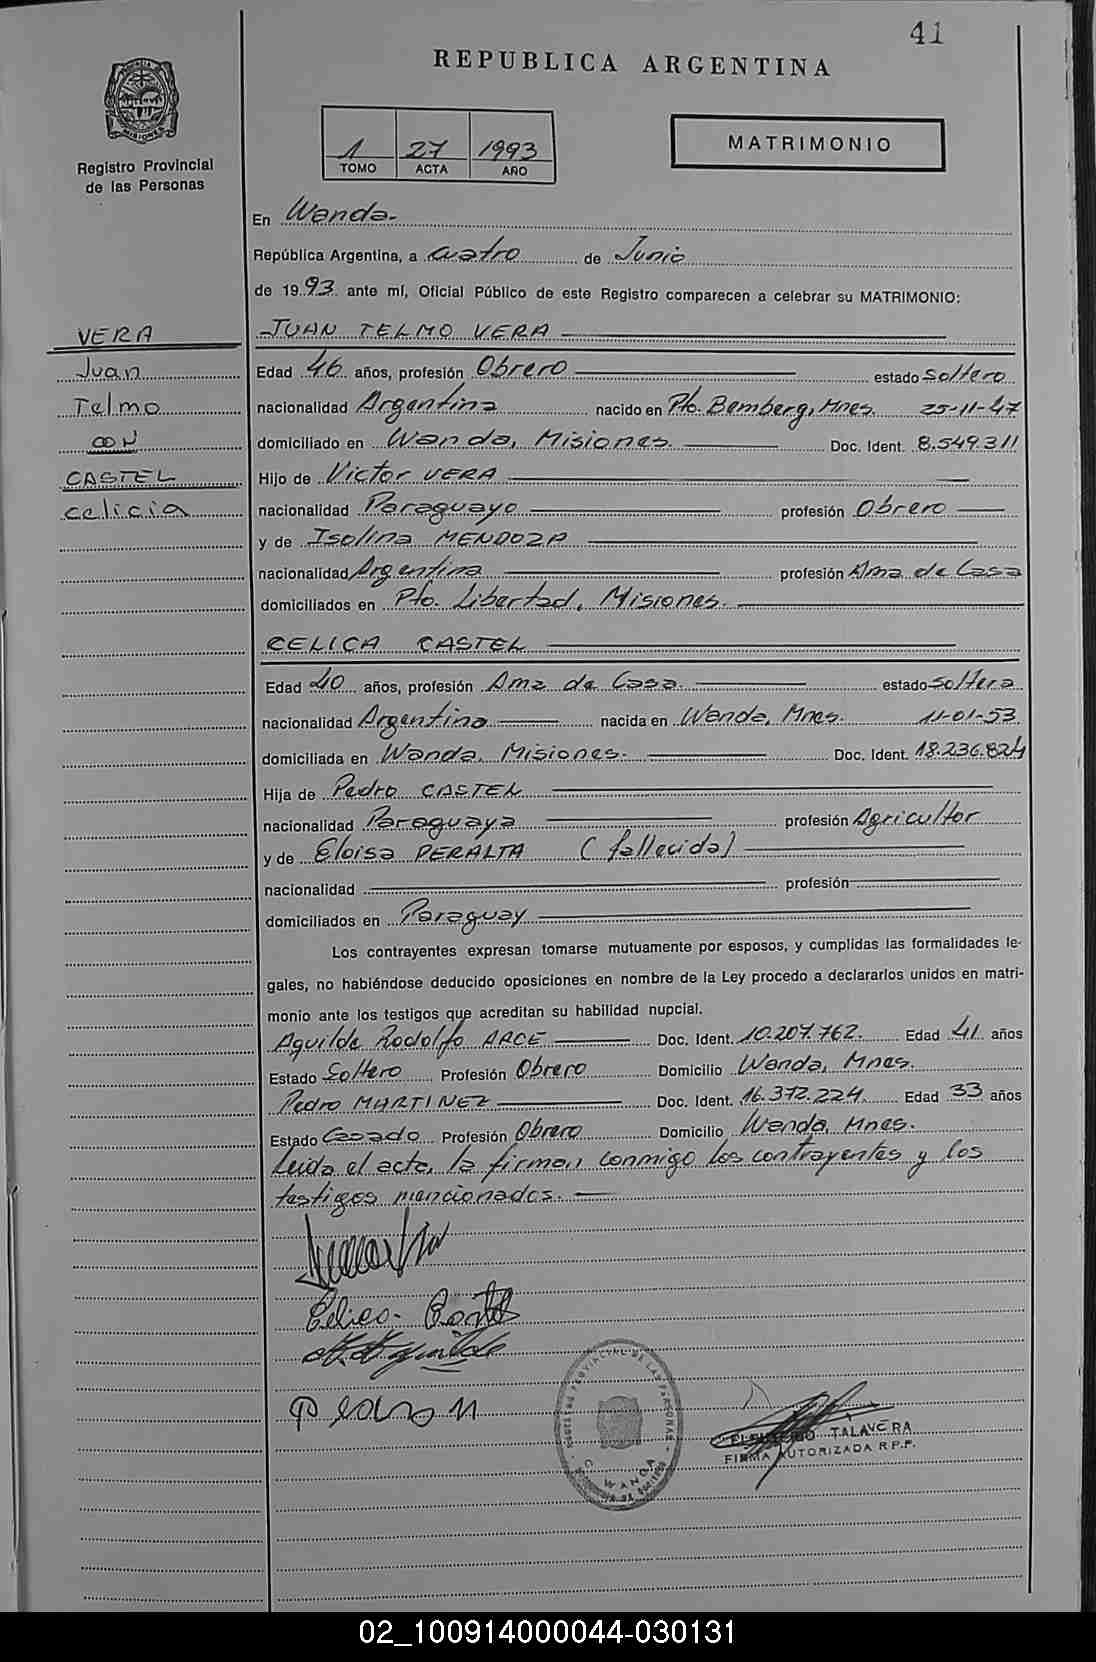 41
REPUBLICA ARGENTINA
Registro Provincial
de las Personas
1 27 1993
TOMO ACTA AÑO
MATRIMONIO
En Wanda.-
República Argentina, a cuatro de Junio
de 1993 ante mí, Oficial Público de este Registro comparecen a celebrar su MATRIMONIO:
VERA
Juan
Telmo
CON
CASTEL
Celicia
JUAN TELMO VERA
Edad 46 años, profesión Obrero estado Soltero
nacionalidad Argentina nacido en Pto. Bemberg, Mnes. 25-11-47
domiciliado en Wanda, Misiones. Doc. Ident. 8.549.311
Hijo de Victor VERA
nacionalidad Paraguayo profesión Obrero
y de Isolina MENDOZA
nacionalidad Argentina profesión Ama de Casa
domiciliados en Pto. Libertad, Misiones.
CELICA CASTEL
Edad 40 años, profesión Ama de Casa. estado soltera
nacionalidad Argentina nacida en Wanda, Mnes. 11-01-53
domiciliada en Wanda, Misiones. Doc. Ident. 18.236.824
Hija de Pedro CASTEL
nacionalidad Paraguaya profesión Agricultor
y de Eloisa PERALTA (fallecida)
nacionalidad profesión
domiciliados en Paraguay
Los contrayentes expresan tomarse mutuamente por esposos, y cumplidas las formalidades le-
gales, no habiéndose deducido oposiciones en nombre de la Ley procedo a declararlos unidos en matri-
monio ante los testigos que acreditan su habilidad nupcial.
Aguilda Rodolfo ARCE Doc. Ident. 10.207.762. Edad 41 años
Estado Soltero Profesión Obrero Domicilio Wanda, Mnes.
Pedro MARTINEZ Doc. Ident. 16.372.224 Edad 33 años
Estado Casado Profesión Obrero Domicilio Wanda, Mnes.
Leida el acta, la firman conmigo los contrayentes y los
testigos mencionados.
Celica Castel
TALAVERA
FIRMA AUTORIZADA R.P.P.
WANDA
02_100914000044-030131